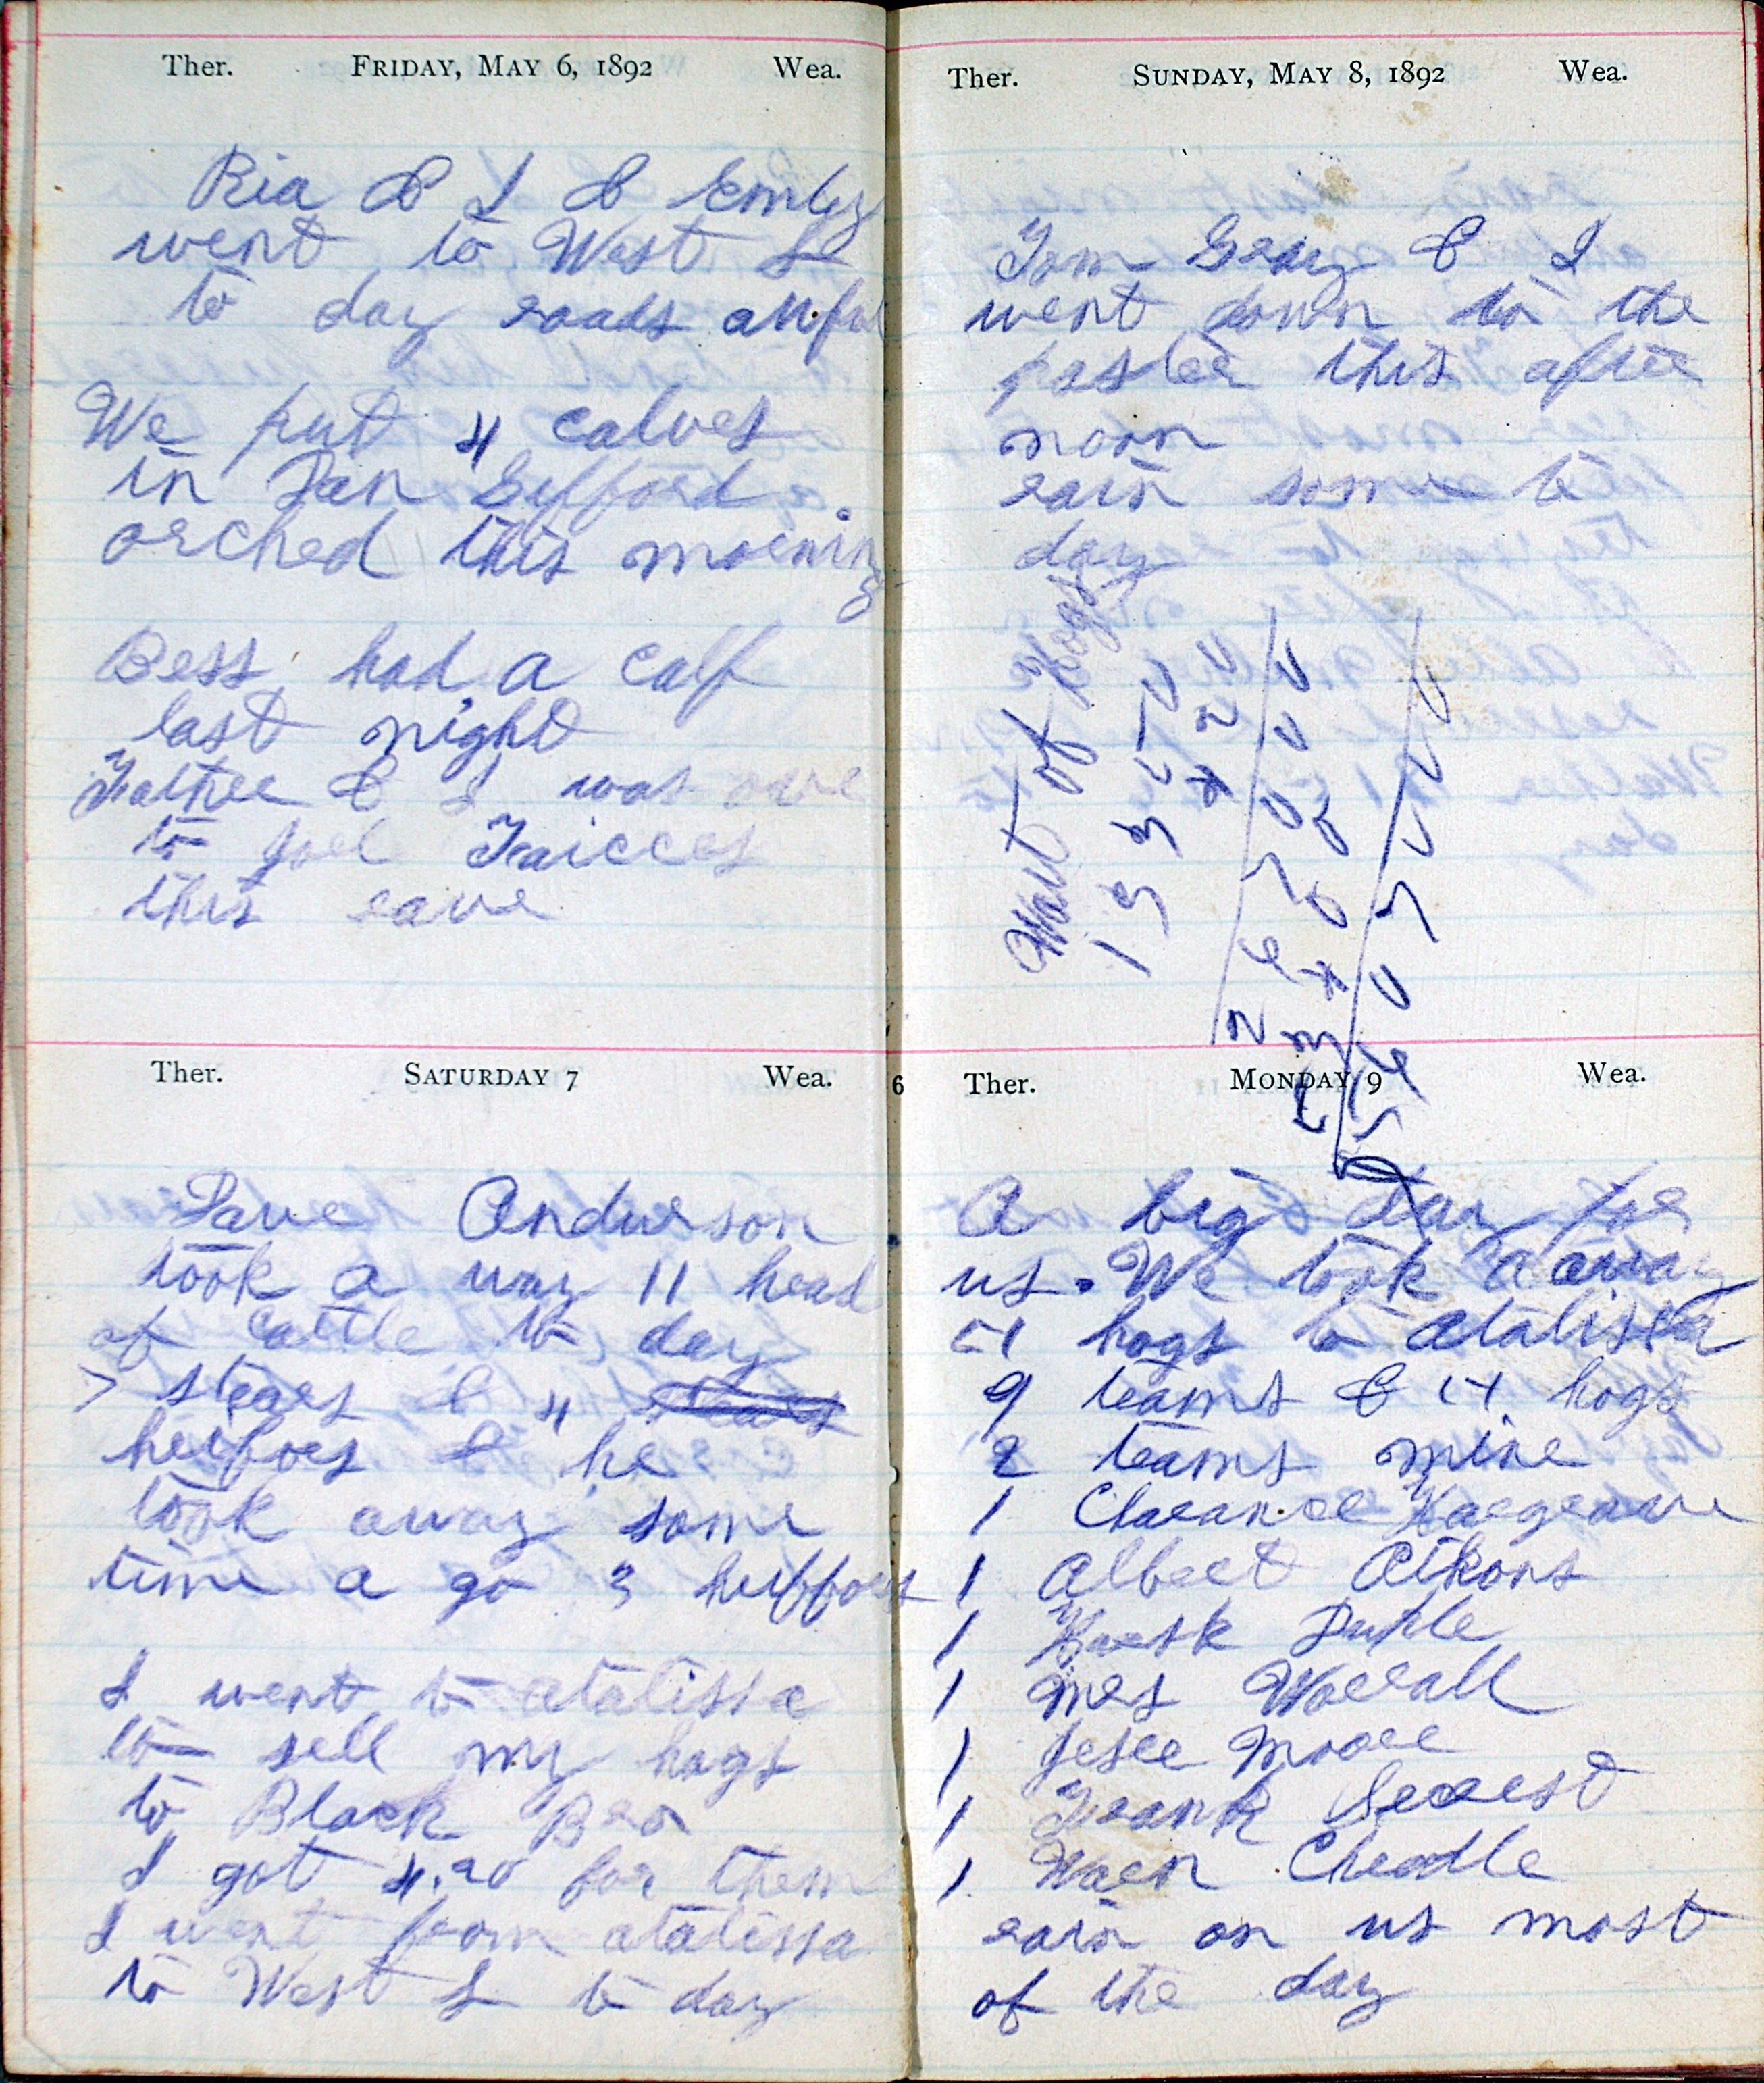 Ther. FRIDAY, MAY 6, 1892 Wea.
Ria & I & Emley
went to West L
to day roads awful
We put 4 calves
in Dan Gifford
orched this morning
Bess had a calf
last night
& I was ove
to Joel
this eave
Ther. SATURDAY 7 Wea.
Dave Anderson
took a way 11 head
of Cattle to day
7 stears & 4
heiffors & he
took away some
time a go 3 heiffors
I went to atalissa
to sell my hogs
to Black Bro
I got 4.20 for them
I went from atalissa
to West L to day
Ther. SUNDAY, MAY 8, 1892 Wea.
Tom Gray & I
went down to the
paster this after
noon
rain some to
day
Wait of Hogs
6 Ther. MONDAY 9 Wea.
A big day for
us. We took a away
hogs to atalissa
9 teams & hogs
2 teams mine
1 Clarance Hargrave
1 Albert Atkons
1 Hersk Duple
1 Mrs Worrall
1 Jesee Moore
1 Frank Secrest
1 Warn Cheadle
rain on us most
of the day